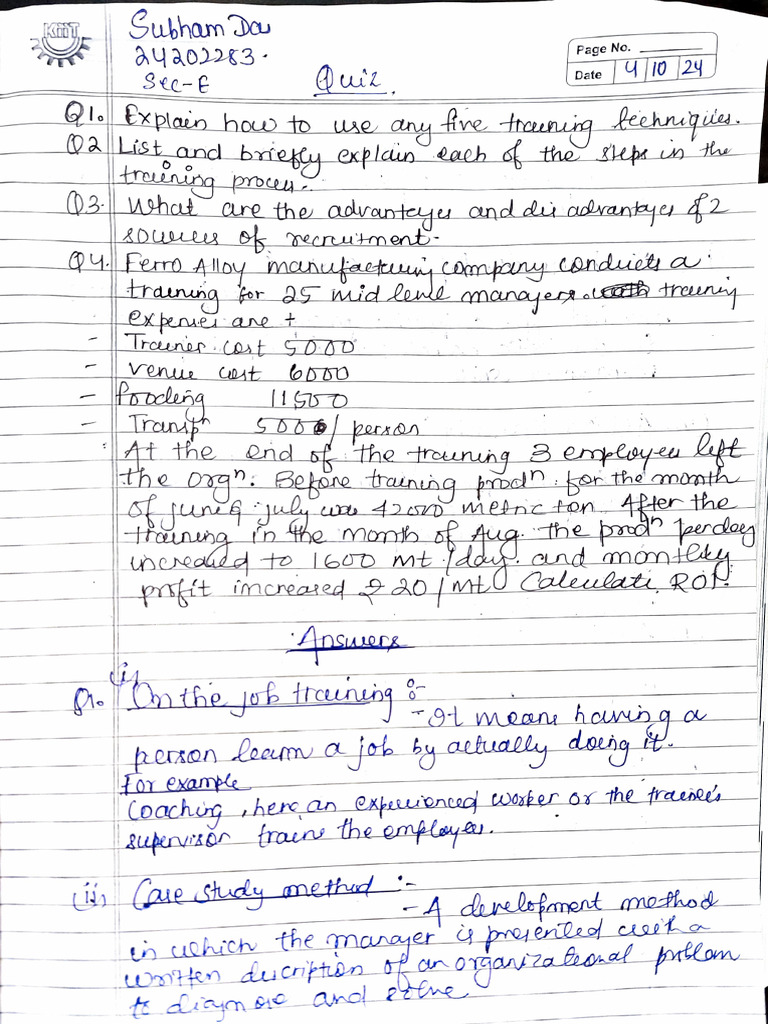 KIIT
Subham Das
24202283.
Sec-E
Page No.
Date 4 10 24
Quiz.
Q1. Explain how to use any five training techniques.
Q2 List and briefly explain each of the steps in the
training process.
Q3. What are the advantages and disadvantages of 2
sources of recruitment.
Q4. Ferro Alloy manufacturing company conducts a
training for 25 mid level managers. training
expenses are
- Trainer cost 5000
- venue cost 6000
- fooding 11500
- Transpn 5000/ person
At the end of the training 3 employees left
the orgn. Before training prodn for the month
of june & july was 42000 metric ton. After the
training in the month of Aug. the prodn per day
increased to 1600 mt/day. and monthly
profit increased 20/mt Calculate ROI.
Answers
Q1. (i) On the job training :-
- It means having a
person learn a job by actually doing it.
For example
Coaching, here an experienced worker or the trainee's
supervisor trains the employees.
(ii) Case study method :-
- A development method
in which the manager is presented with a
written description of an organizational problem
to diagnose and solve